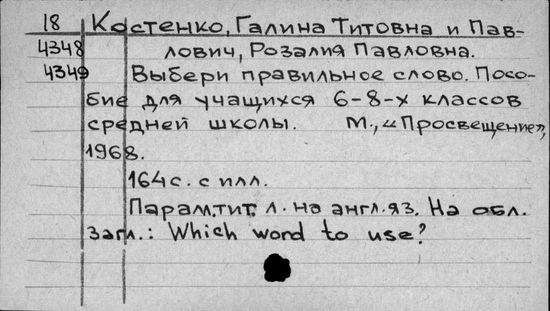 18 Костенко, Галина Титовна и Пав-
4348 лович, Розалия Павловна.
4349 Выбери правильное слово. Посо-
бие для учащихся 6-8-х классов
средней школы. М., «Просвещение»,
1968.
164 с. с илл.
Парал. тит. л. на англ. яз. На обл.
загл.: Which word to use?